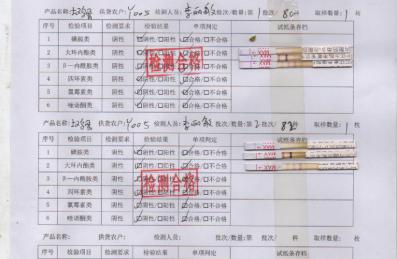 产品名称: 土鸡蛋 供货农户: Y005 检测人员: 批次/数量:第1批次/ 8 取样数量: 1 枚
序号 检验项目 检测要求 检验结果 单项判定 试纸条存档
1 磺胺类 阴性 ☑阴性/☐阳性 ☑合格/☐不合格
2 大环内酯类 阴性 ☑阴性/☐阳性 ☑合格/☐不合格
3 β一内酰胺类 阴性 ☑阴性/☐阳性 ☑合格/☐不合格
4 四环素类 阴性 ☑阴性/☐阳性 ☑合格/☐不合格
5 氯霉素类 阴性 ☑阴性/☐阳性 ☑合格/☐不合格
6 喹诺酮类 阴性 ☑阴性/☐阳性 ☑合格/☐不合格
检测合格
产品名称: 土鸡蛋 供货农户: Y005 检测人员: 批次/数量:第2批次/ 8 取样数量: 1 枚
序号 检验项目 检测要求 检验结果 单项判定 试纸条存档
1 磺胺类 阴性 ☑阴性/☐阳性 ☑合格/☐不合格
2 大环内酯类 阴性 ☑阴性/☐阳性 ☑合格/☐不合格
3 β一内酰胺类 阴性 ☑阴性/☐阳性 ☑合格/☐不合格
4 四环素类 阴性 ☑阴性/☐阳性 ☑合格/☐不合格
5 氯霉素类 阴性 ☑阴性/☐阳性 ☑合格/☐不合格
6 喹诺酮类 阴性 ☑阴性/☐阳性 ☑合格/☐不合格
检测合格
产品名称: 供货农户: 检测人员: 批次/数量:第 批次/ 件 取样数量: 枚
序号 检验项目 检测要求 检验结果 单项判定 试纸条存档